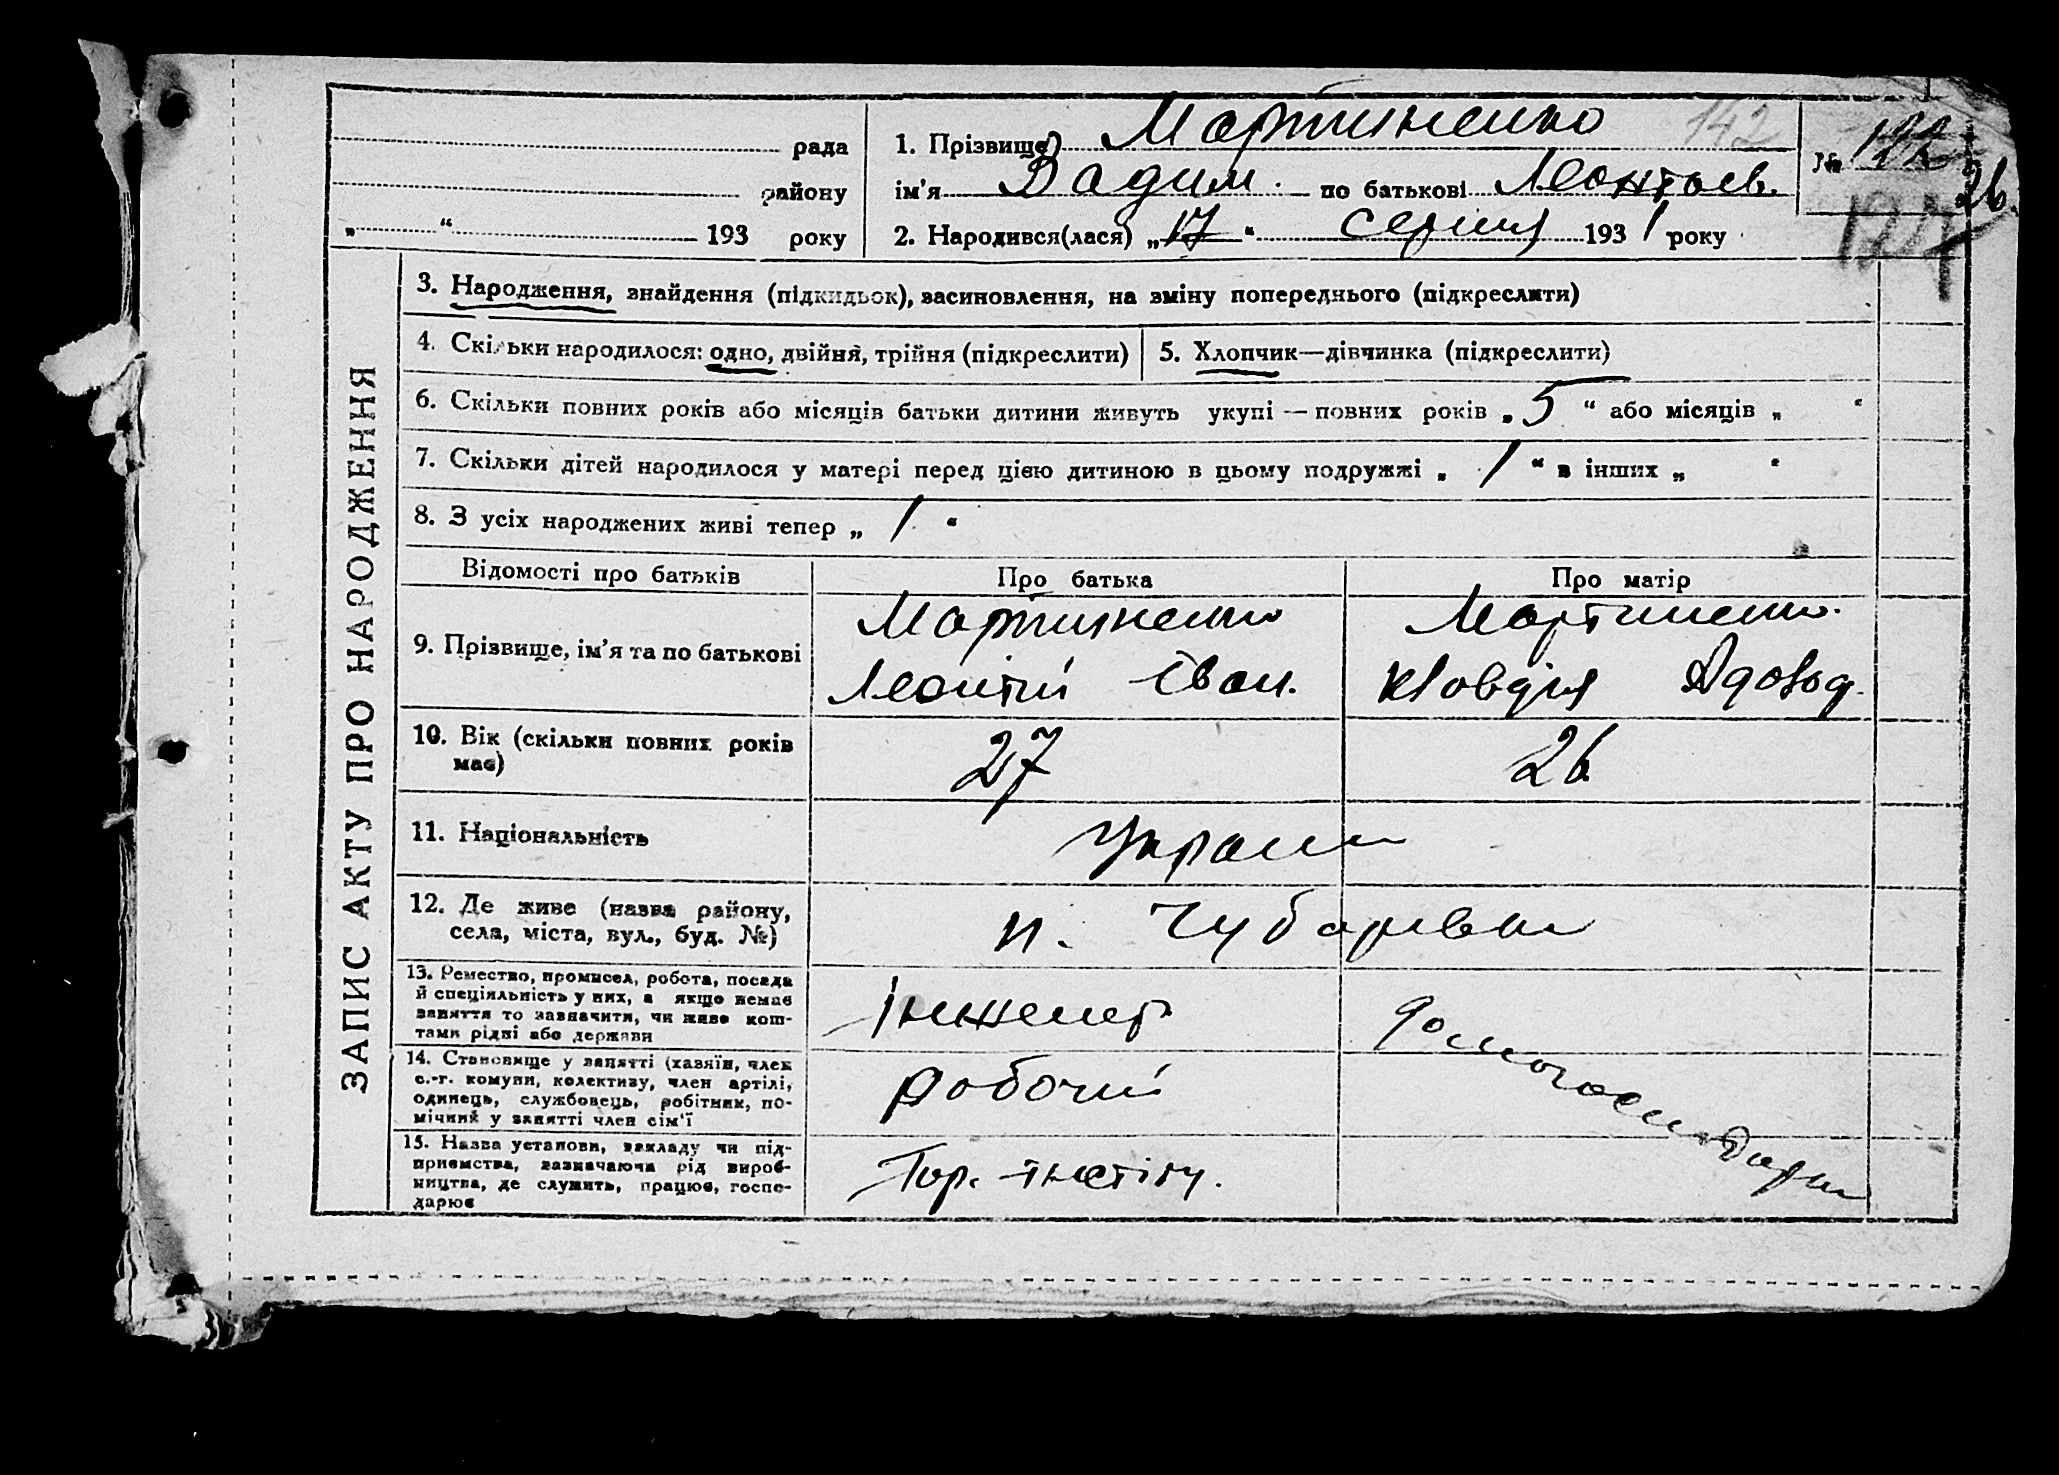 рада
району
„ “ 193 року
1. Прізвище Мартиненко 142
ім'я Вадим. по батькові Леонтьев.
2. Народився(лася) „17“ серпня 1931 року
№ 122
26.
ЗАПИС АКТУ ПРО НАРОДЖЕННЯ
3. Народження, знайдення (підкидьок), засиновлення, на зміну попереднього (підкреслити)
4. Скільки народилося: одно, двійня, трійня (підкреслити)
5. Хлопчик—дівчинка (підкреслити)
6. Скільки повних років або місяців батьки дитини живуть укупі — повних років „5“ або місяців „ “
7. Скільки дітей народилося у матері перед цією дитиною в цьому подружжі „1“ в інших „ “
8. З усіх народжених живі тепер „1“
Відомості про батьків Про батька Про матір
9. Прізвище, ім'я та по батькові
Мартиненко
Леонтій Іван.
Мартиненко.
Клавдія
10. Вік (скільки повних років
має)
27
26
11. Національність
Україн
12. Де живе (назва району,
села, міста, вул., буд. №)
п. Чубарівка
13. Ремество, промисел, робота, посада
й спеціяльність у них, а якщо немає
заняття то зазначити, чи живе кош-
тами рідні або держави
Інженер
домогосподарка
14. Становище у занятті (хазяїн, член
с.-г. комуни, колективу, член артілі,
одинець, службовець, робітник, по-
мічний у занятті член сім'ї
робочий
15. Назва установи, закладу чи під-
приємства, зазначаючи рід вироб-
ництва, де служить, працює, госпо-
дарює
Гор. Інстіту.